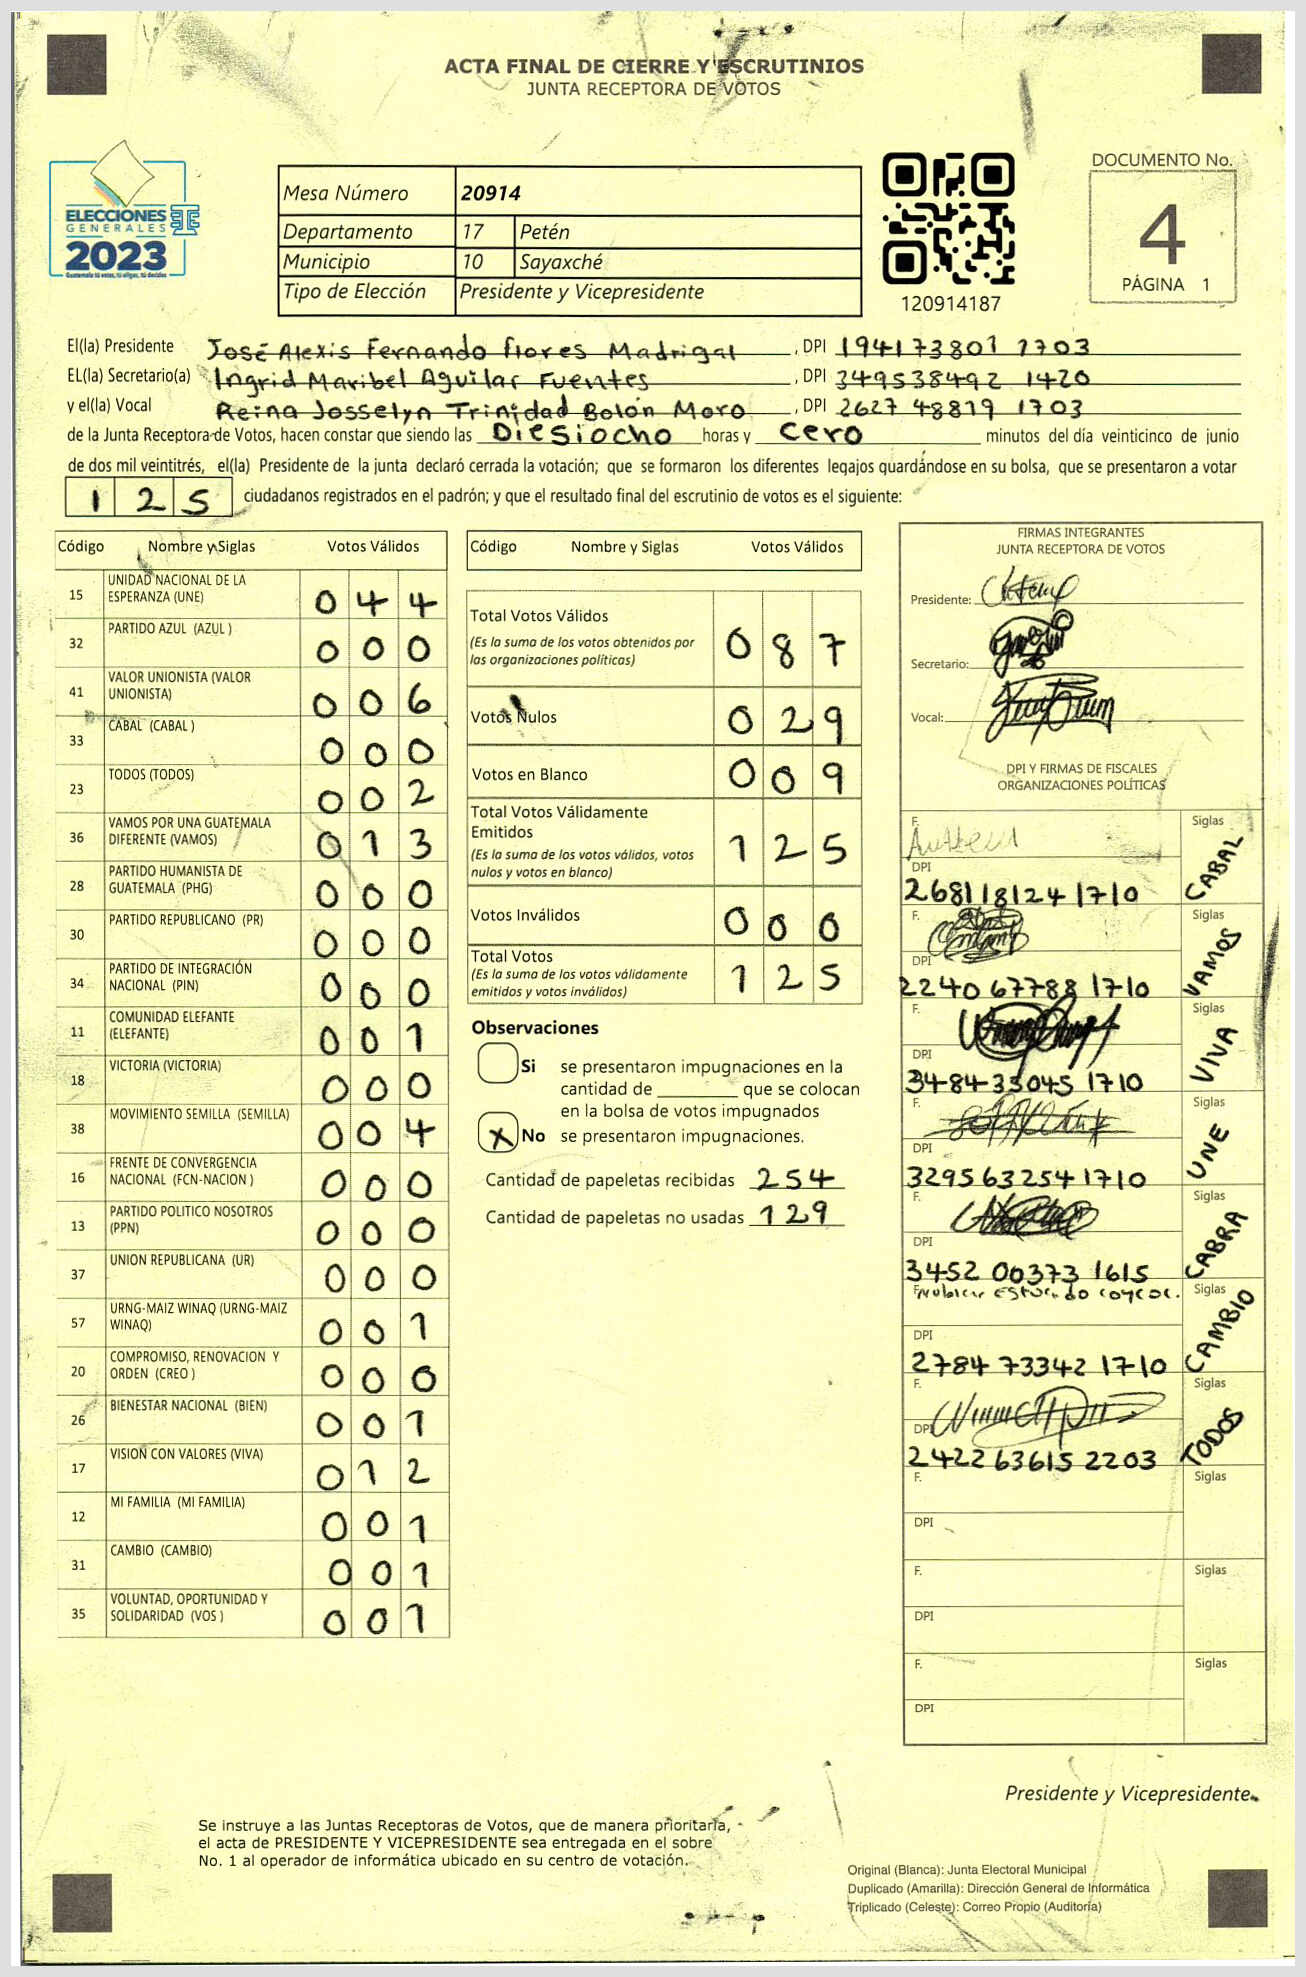 ACTA FINAL DE CIERRE Y ESCRUTINIOS
JUNTA RECEPTORA DE VOTOS
ELECCIONES
GENERALES
2023
Guatemala tú votas, tú eliges, tú decides
Mesa Número 20914
Departamento 17 Petén
Municipio 10 Sayaxché
Tipo de Elección Presidente y Vicepresidente
120914187
DOCUMENTO No.
4
PÁGINA 1
El(la) Presidente José Alexis Fernando Flores Madrigal, DPI 194173801 1703
EL(la) Secretario(a) Ingrid Maribel Aguilar Fuentes, DPI 349538492 1420
y el(la) Vocal Reina Josselyn Trinidad Bolón Moro, DPI 2627 48819 1703
de la Junta Receptora de Votos, hacen constar que siendo las Diesiocho horas y cero minutos del día veinticinco de junio
de dos mil veintitrés, el(la) Presidente de la junta declaró cerrada la votación; que se formaron los diferentes legajos guardándose en su bolsa, que se presentaron a votar
125 ciudadanos registrados en el padrón; y que el resultado final del escrutinio de votos es el siguiente:
Código Nombre y Siglas Votos Válidos
15 UNIDAD NACIONAL DE LA ESPERANZA (UNE) 044
32 PARTIDO AZUL (AZUL ) 000
41 VALOR UNIONISTA (VALOR UNIONISTA) 006
33 CABAL (CABAL ) 000
23 TODOS (TODOS) 002
36 VAMOS POR UNA GUATEMALA DIFERENTE (VAMOS) 013
28 PARTIDO HUMANISTA DE GUATEMALA (PHG) 000
30 PARTIDO REPUBLICANO (PR) 000
34 PARTIDO DE INTEGRACIÓN NACIONAL (PIN) 000
11 COMUNIDAD ELEFANTE (ELEFANTE) 001
18 VICTORIA (VICTORIA) 000
38 MOVIMIENTO SEMILLA (SEMILLA) 004
16 FRENTE DE CONVERGENCIA NACIONAL (FCN-NACION ) 000
13 PARTIDO POLITICO NOSOTROS (PPN) 000
37 UNION REPUBLICANA (UR) 000
57 URNG-MAIZ WINAQ (URNG-MAIZ WINAQ) 001
20 COMPROMISO, RENOVACION Y ORDEN (CREO ) 000
26 BIENESTAR NACIONAL (BIEN) 001
17 VISION CON VALORES (VIVA) 012
12 MI FAMILIA (MI FAMILIA) 001
31 CAMBIO (CAMBIO) 001
35 VOLUNTAD, OPORTUNIDAD Y SOLIDARIDAD (VOS ) 001
Código Nombre y Siglas Votos Válidos
Total Votos Válidos 087
(Es la suma de los votos obtenidos por
las organizaciones políticas)
Votos Nulos 029
Votos en Blanco 009
Total Votos Válidamente
Emitidos 125
(Es la suma de los votos válidos, votos
nulos y votos en blanco)
Votos Inválidos 000
Total Votos 125
(Es la suma de los votos válidamente
emitidos y votos inválidos)
Observaciones
Si se presentaron impugnaciones en la
cantidad de ________ que se colocan
en la bolsa de votos impugnados
X No se presentaron impugnaciones.
Cantidad de papeletas recibidas 254
Cantidad de papeletas no usadas 129
FIRMAS INTEGRANTES
JUNTA RECEPTORA DE VOTOS
Presidente:
Secretario:
Vocal:
DPI Y FIRMAS DE FISCALES
ORGANIZACIONES POLÍTICAS
F. Siglas CABAL
DPI
268118124 1710
F. Siglas VAMOS
DPI
2240 67788 1710
F. Siglas VIVA
DPI
3484 35045 1710
F. Siglas UNE
DPI
329563254 1710
F. Siglas CABRA
DPI
3452 00373 1615
F. Siglas CAMBIO
DPI
2784 73342 1710
F. Siglas TODOS
DPI
2422 63615 2203
F. Siglas
DPI
F. Siglas
DPI
F. Siglas
DPI
Presidente y Vicepresidente
Se instruye a las Juntas Receptoras de Votos, que de manera prioritaria,
el acta de PRESIDENTE Y VICEPRESIDENTE sea entregada en el sobre
No. 1 al operador de informática ubicado en su centro de votación.
Original (Blanca): Junta Electoral Municipal
Duplicado (Amarilla): Dirección General de Informática
Triplicado (Celeste): Correo Propio (Auditoría)